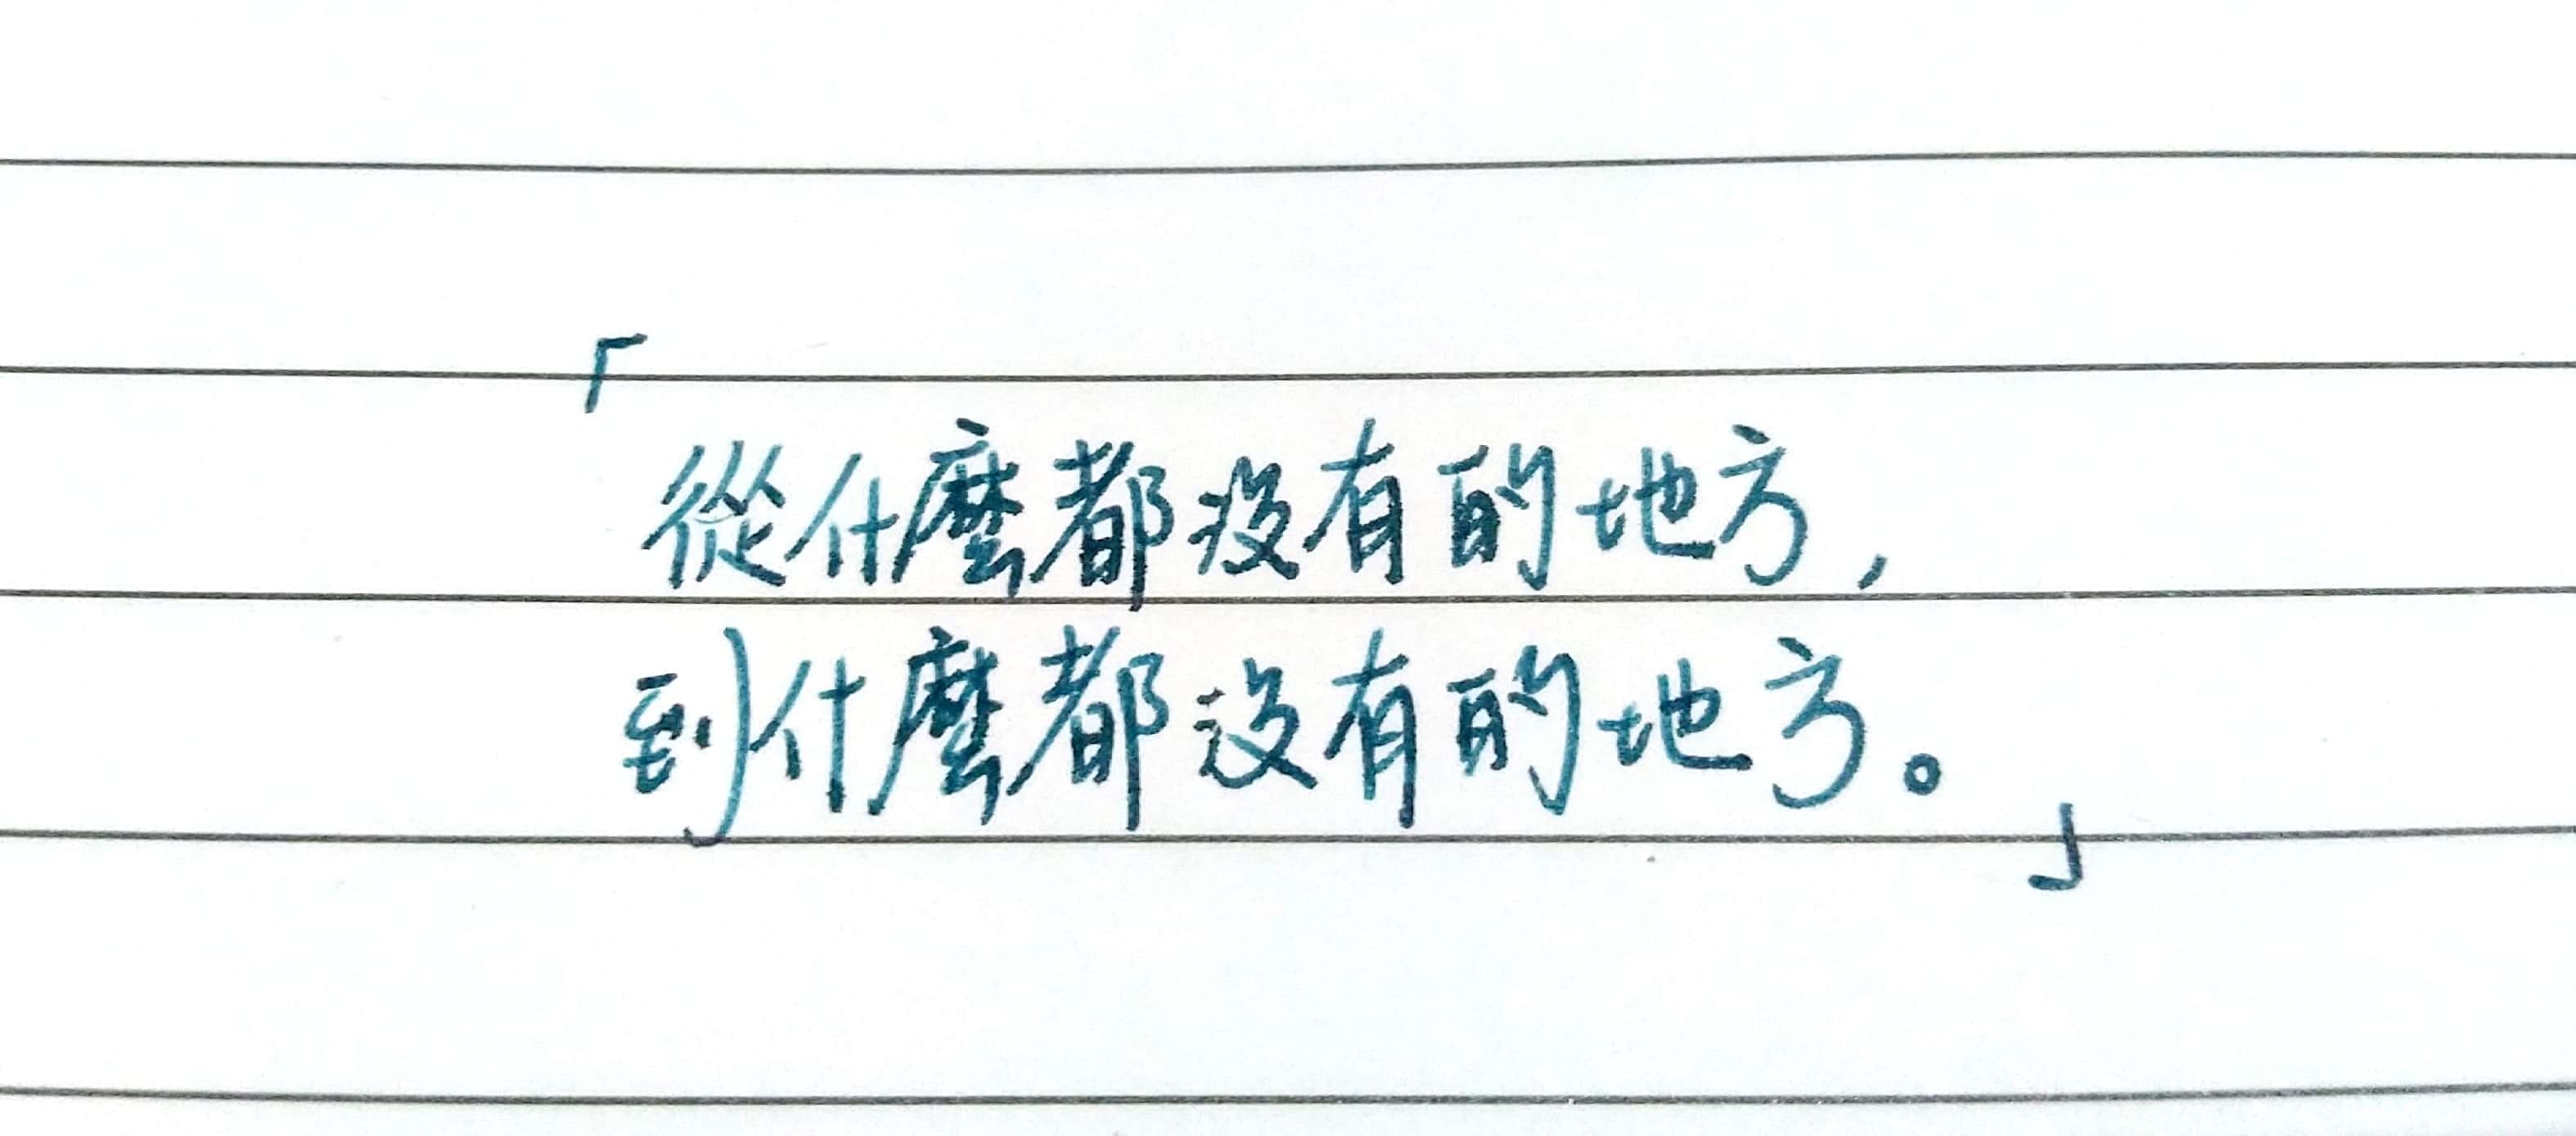 「
從什麼都沒有的地方，
到什麼都沒有的地方。
」